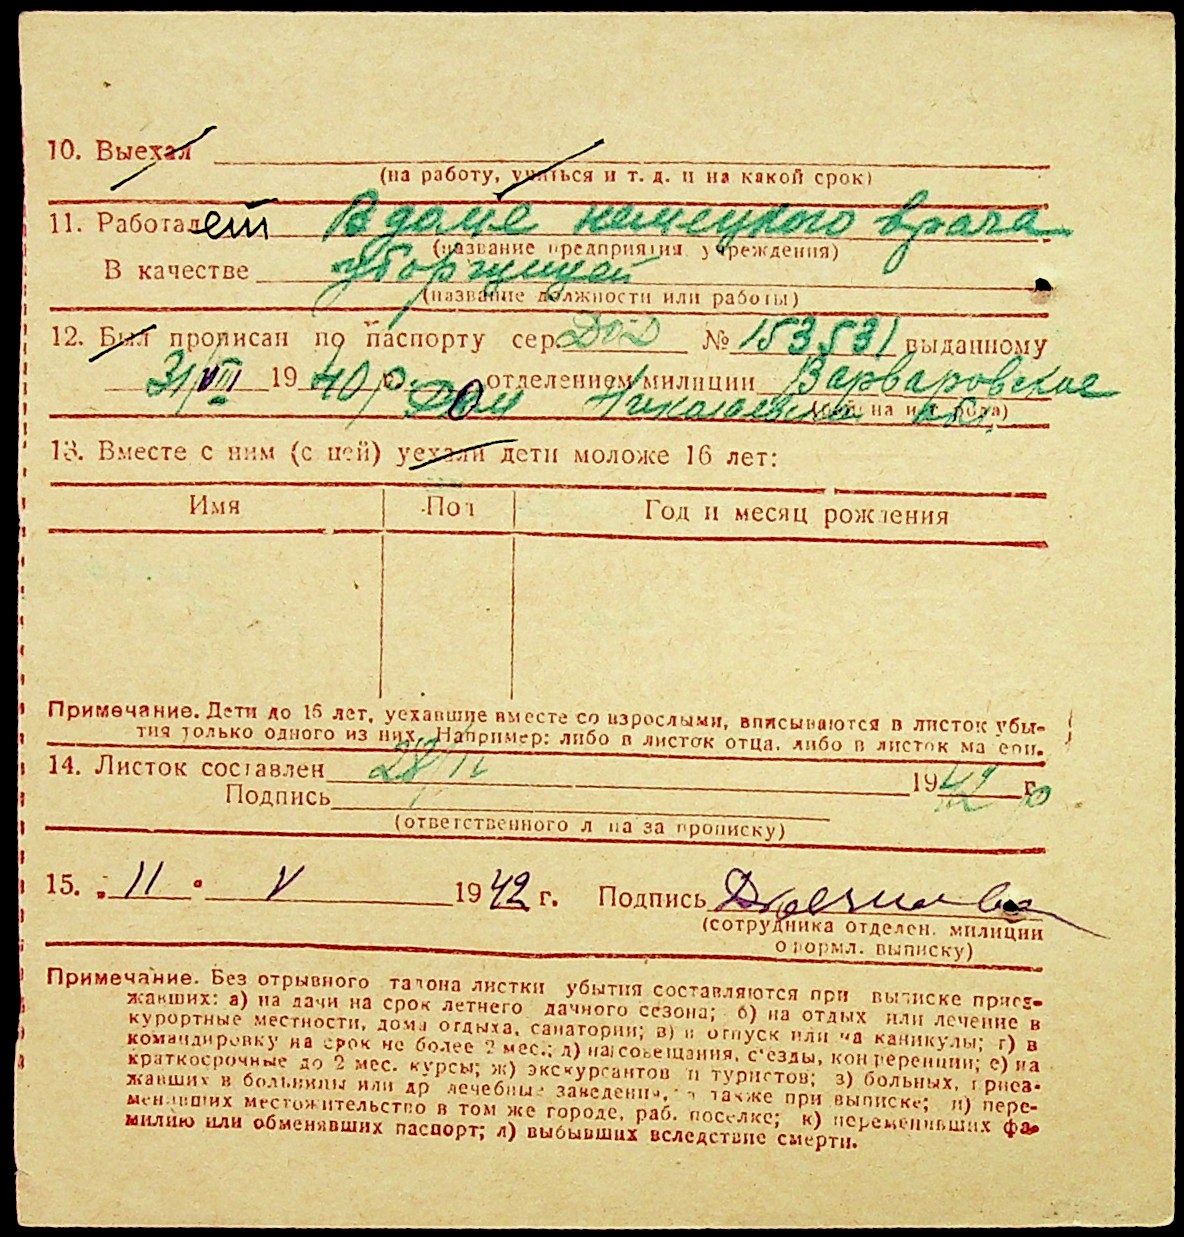 10. Выехал
(на работу, учиться и т. д. и на какой срок)
11. Работает В доме немецкого врача
(название предприятия учреждения)
В качестве уборщицей
(название должности или работы)
12. Был прописан по паспорту сер. ДОД № 153531 выданному
31/VII 1940 г. отделением милиции Варваровское
РОМ Николаевской обл.
13. Вместе с ним (с ней) уехали дети моложе 16 лет:
Имя Пол Год и месяц рождения
Примечание. Дети до 16 лет, уехавшие вместе со взрослыми, вписываются в листок убы-
тия только одного из них. Например: либо в листок отца, либо в листок матери.
14. Листок составлен 28/II 1942 г.
Подпись
(ответственного лица за прописку)
15. „11" V 1942 г. Подпись
(сотрудника отделен. милиции
оформл. выписку)
Примечание. Без отрывного талона листки убытия составляются при выписке приез-
жавших: а) на дачи на срок летнего дачного сезона; б) на отдых или лечение в
курортные местности, дома отдыха, санатории; в) в отпуск или на каникулы; г) в
командировку на срок не более 2 мес.; д) на совещания, с'езды, конференции; е) на
краткосрочные до 2 мес. курсы; ж) экскурсантов и туристов; з) больных, приез-
жавших в больницы или др лечебные заведения, а также при выписке; и) пере-
менивших местожительство в том же городе, раб. поселке; к) переменивших фа-
милию или обменявших паспорт; л) выбывших вследствие смерти.